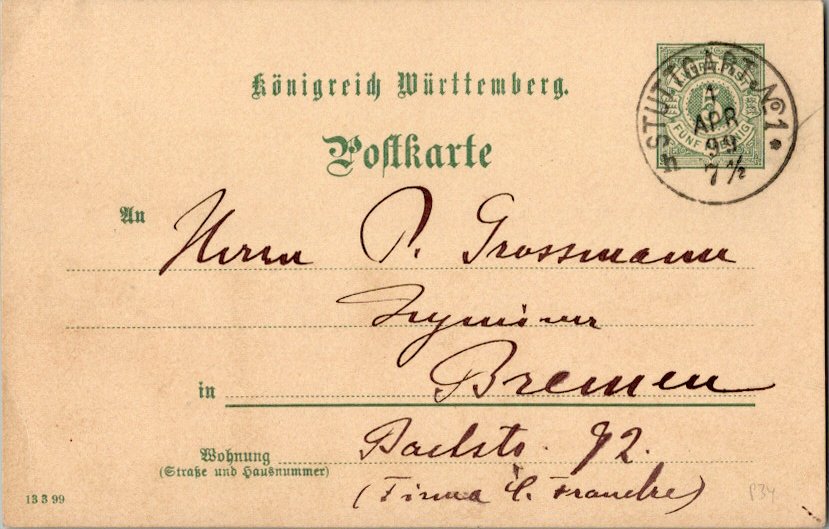 Königreich Württemberg.
STUTTGART No1 *
1
APR
99
7 1/2
FÜNF PFENNIG
Postkarte
An
Herrn P. Grossmann
Ingenieur
in Bremen
Wohnung 92.
(Straße und Hausnummer)
(Firma C. Francke)
13 3 99
P34